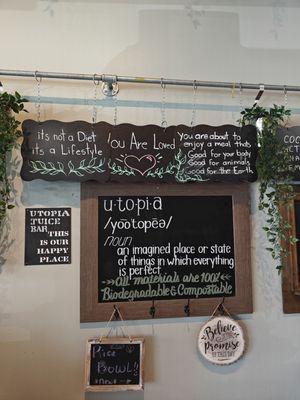 its not a Diet
its a Lifestyle
You Are Loved
You are about to
enjoy a meal thats
Good for your body
Good for animals
Good for the Earth
UTOPIA
JUICE
BAR
THIS
IS OUR
HAPPY
PLACE
u·to·pi·a
/yo͞oˈtōpēə/
noun
an imagined place or state
of things in which everything
is perfect
All materials are 100%
Biodegradable & Compostable
Rice
BOWL!
Believe
in the
Promise
OF THIS DAY